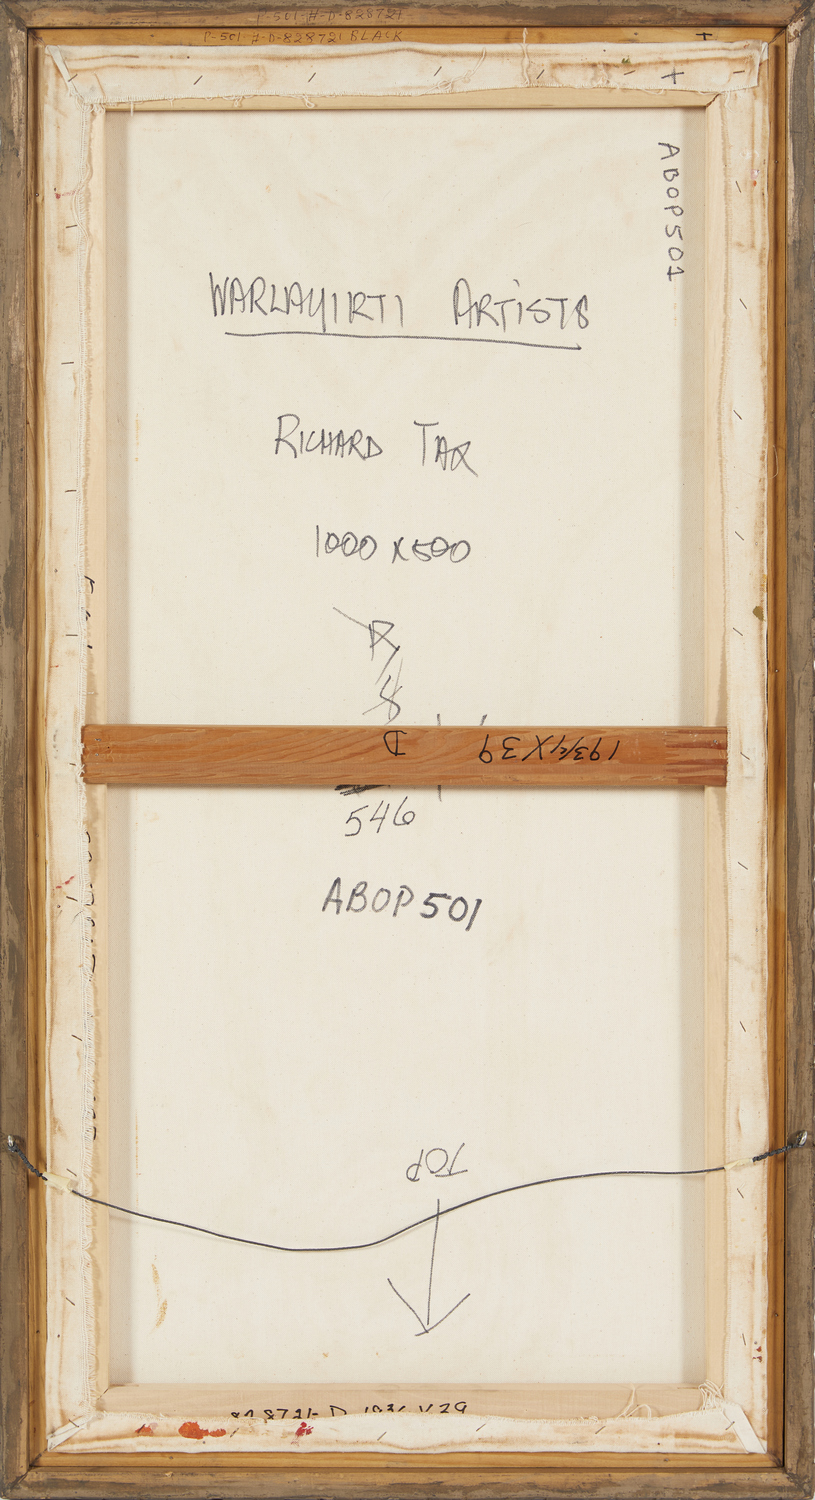 P-501-H-D-828721
P-501-H-D-828721 BLACK
ABOP501
WARLAYIRTI ARTISTS
RICHARD TAX
1000 X 500
D
193/4 X 39
546
ABOP 501
TOP